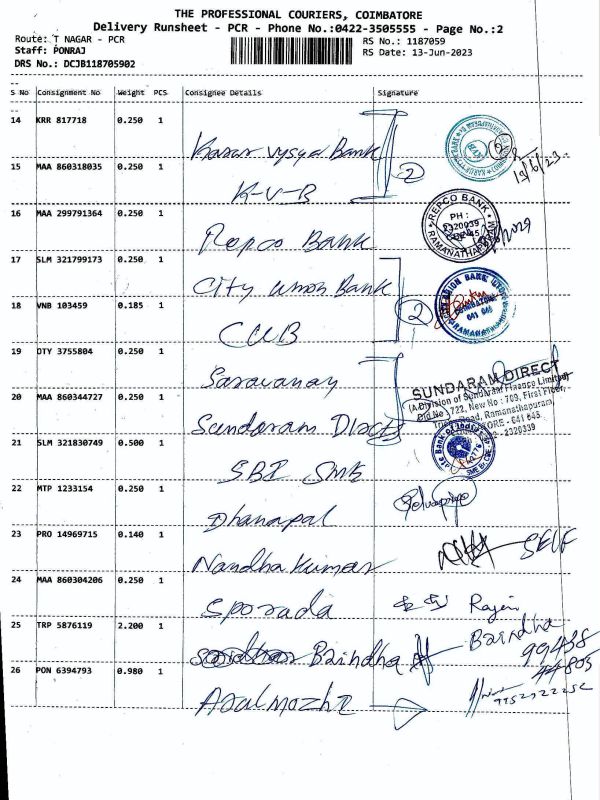 THE PROFESSIONAL COURIERS, COIMBATORE
Delivery Runsheet - PCR - Phone No.:0422-3505555 - Page No.:2
Route: T NAGAR - PCR
RS No.: 1187059
Staff: PONRAJ
RS Date: 13-Jun-2023
DRS No.: DCJB118705902
S No Consignment No Weight PCS Consignee Details Signature
14 KRR 817718 0.250 1
Karur Vysya Bank
15 MAA 860318035 0.250 1
K-V-B
2
19/6/23
16 MAA 299791364 0.250 1
Repco Bank
REPCO BANK
PH :
2320939
CBE-45
RAMANATHAPURAM
17 SLM 321799173 0.250 1
City union Bank
18 VNB 103459 0.185 1
CUB
2
CITY UNION BANK
COIMBATORE
641 045
19 OTY 3755804 0.250 1
Saravanan
SUNDARAM DIRECT
(A Division of Sundaram Finance Limited)
Old No : 722, New No : 709, First Floor,
Road, Ramanathapuram,
- 641 045
- 2320339
20 MAA 860344727 0.250 1
Sundaram Direct
21 SLM 321830749 0.500 1
SBI SME
State Bank of India
22 MTP 1233154 0.250 1
Dhanapal
23 PRO 14969715 0.140 1
Nandha Kumar
SELF
24 MAA 860304206 0.250 1
Sporada
25 TRP 5876119 2.200 1
Barndha
Baindha
99438
44805
26 PON 6394793 0.980 1
Asalmozhi
9952722252